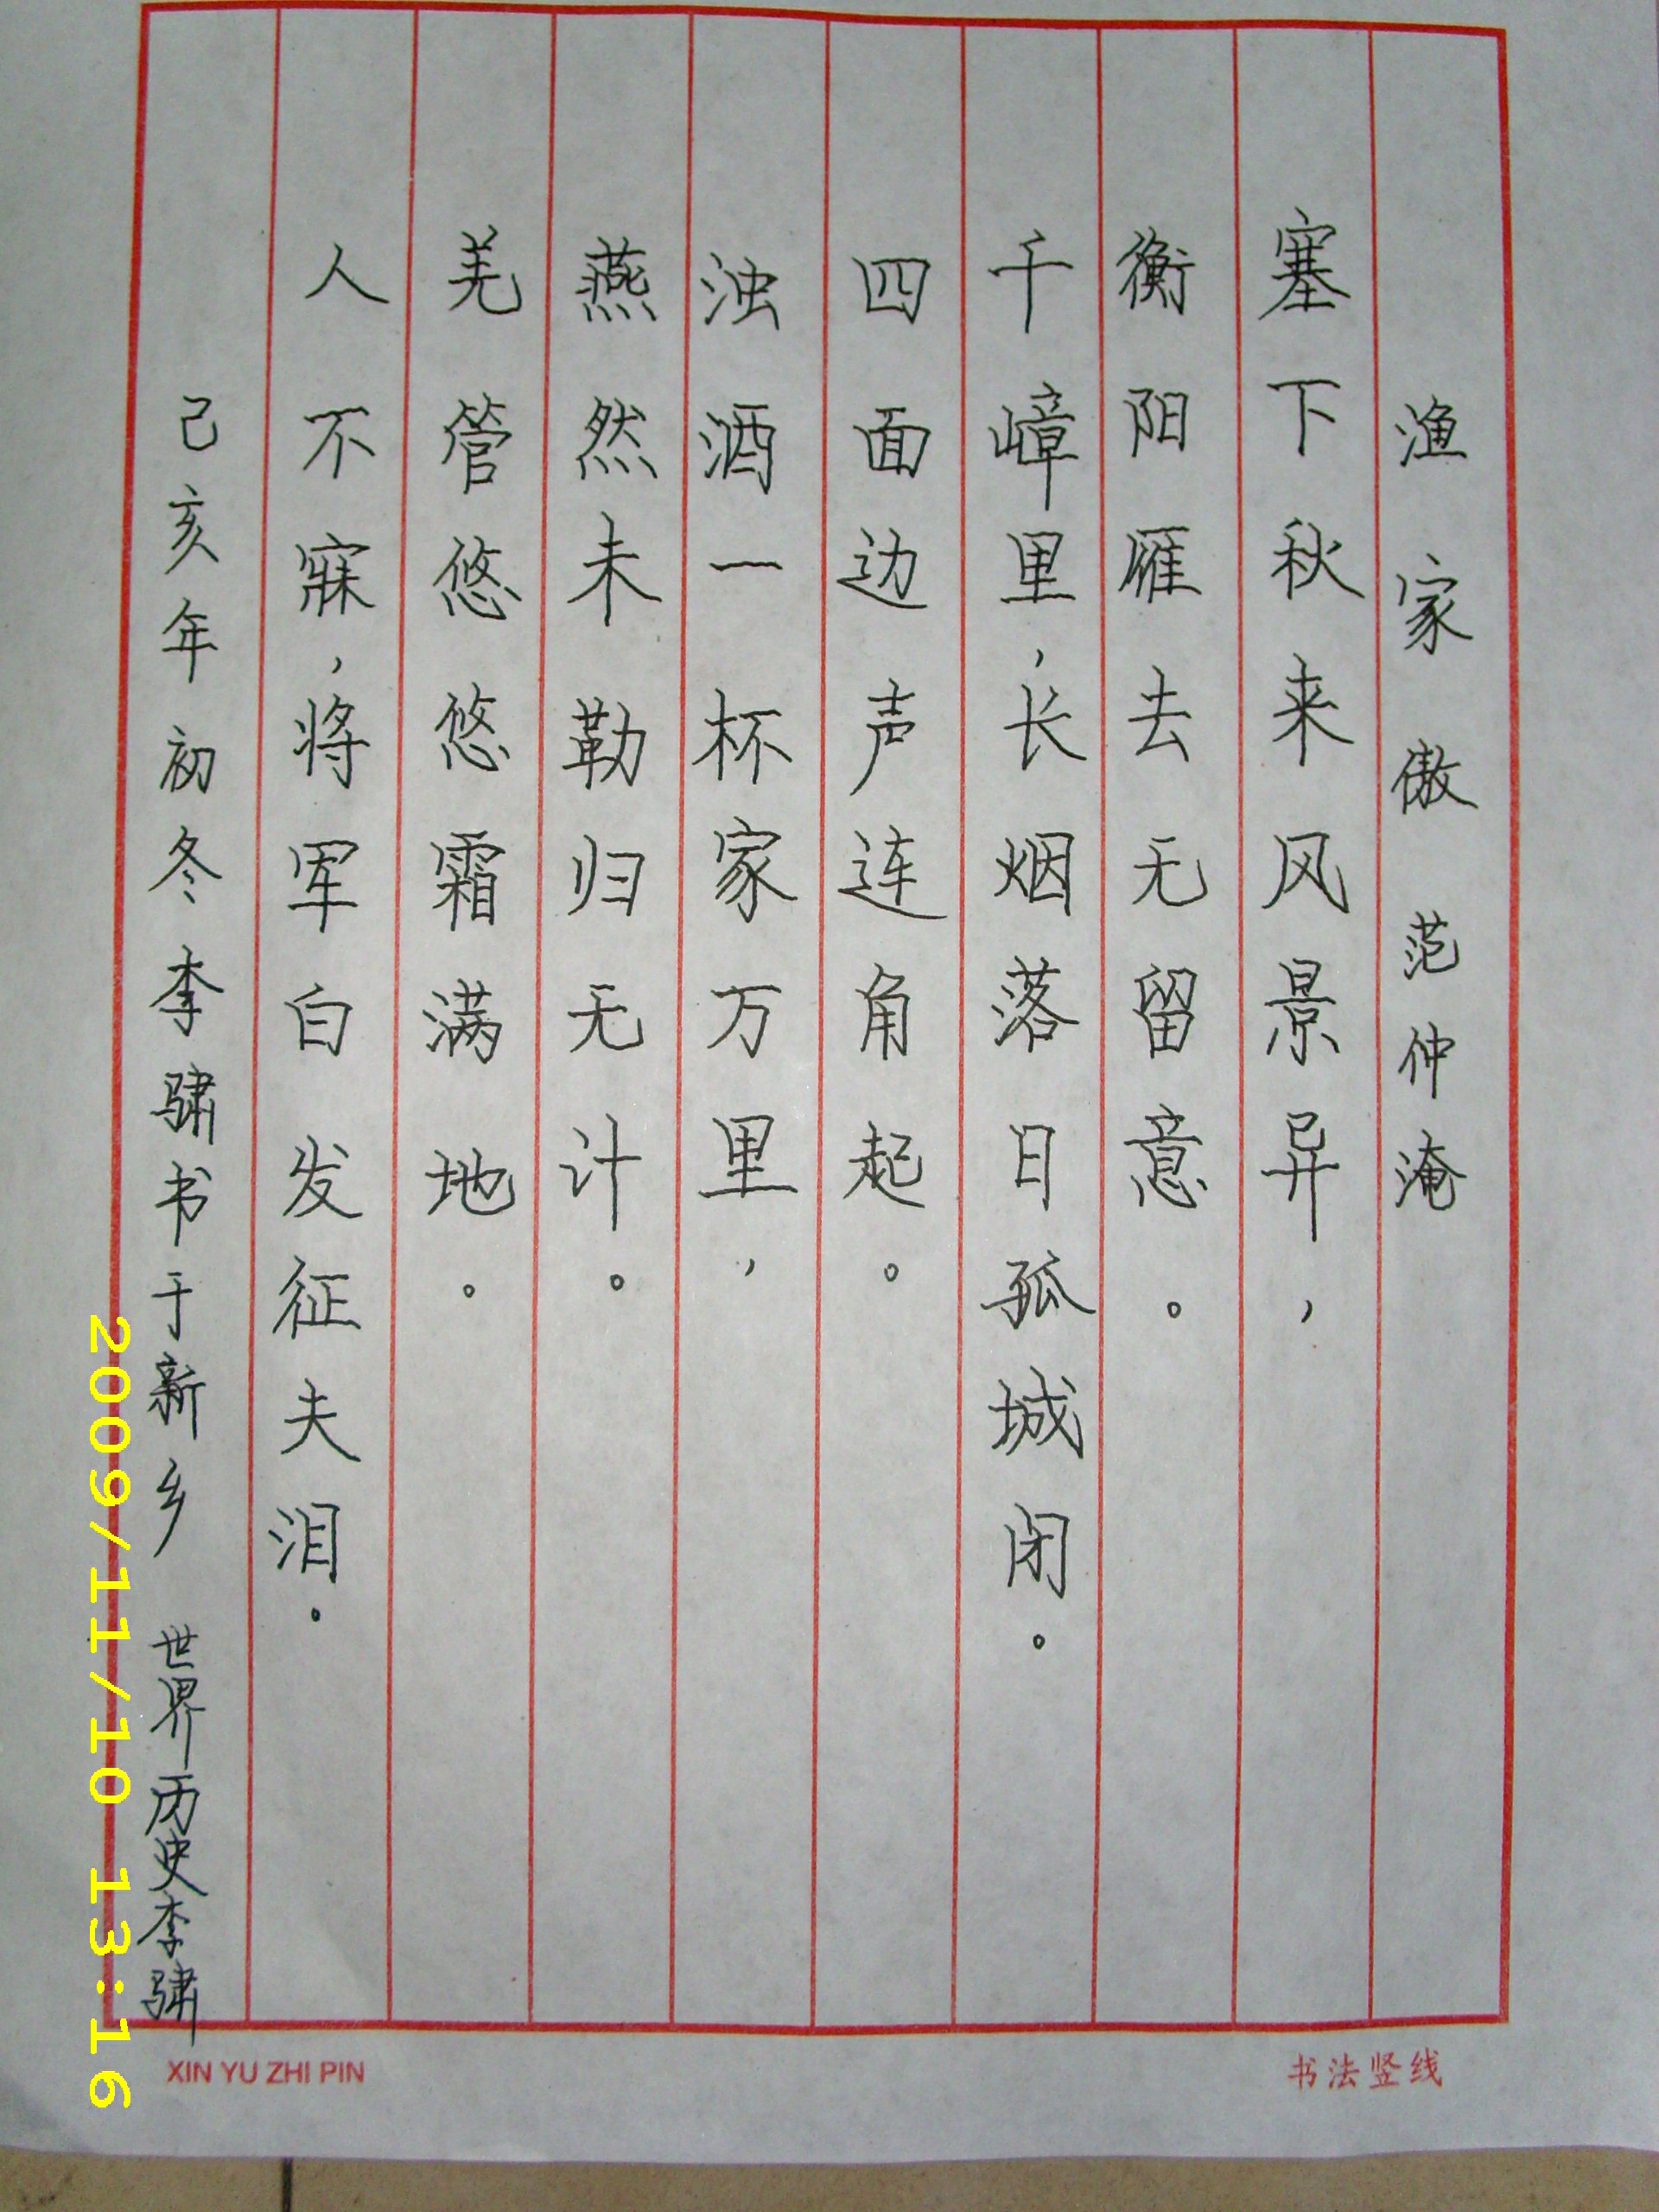 渔家傲 范仲淹
塞下秋来风景异，
衡阳雁去无留意。
千嶂里，长烟落日孤城闭。
四面边声连角起。
浊酒一杯家万里，
燕然未勒归无计。
羌管悠悠霜满地。
人不寐，将军白发征夫泪。
己亥年初冬李骕书于新乡 世界历史李骕
书法竖线
XIN YU ZHI PIN
2009/11/10 13:16